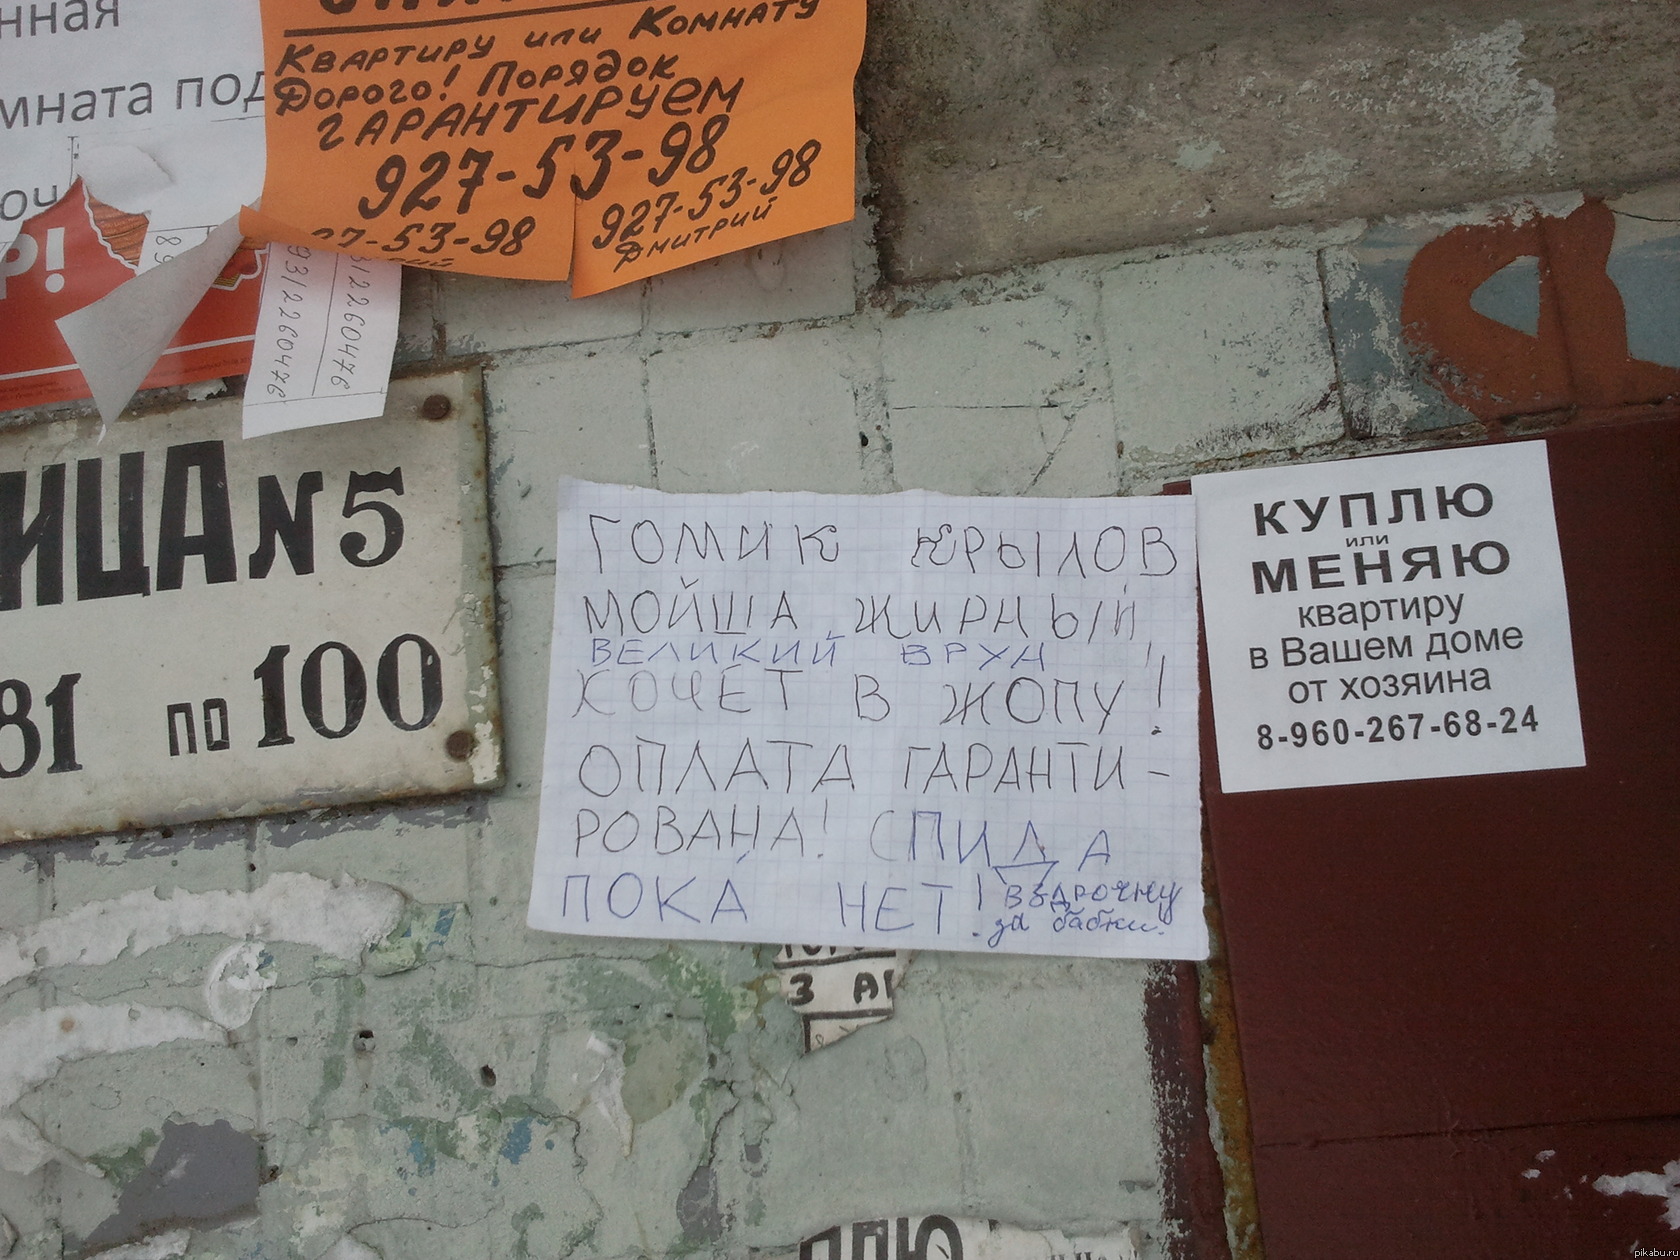 нная
мната под
оч
Р!
Квартиру или Комнату
Дорого! Порядок
гарантируем
927-53-98
927-53-98
Дмитрий
27-53-98
89
9312260476
312260476
ИЦА №5
81 по 100
ГОМИК КРЫЛОВ
МОЙША ЖИРНЫЙ
ВЕЛИКИЙ ВРУН !
ХОЧЕТ В ЖОПУ!
ОПЛАТА ГАРАНТИ-
РОВАНА! СПИДА
ПОКА НЕТ! ВЗДРОЧНУ
за бабки!
КУПЛЮ
или
МЕНЯЮ
квартиру
в Вашем доме
от хозяина
8-960-267-68-24
З АР
ПЛЮ
pikabu.ru